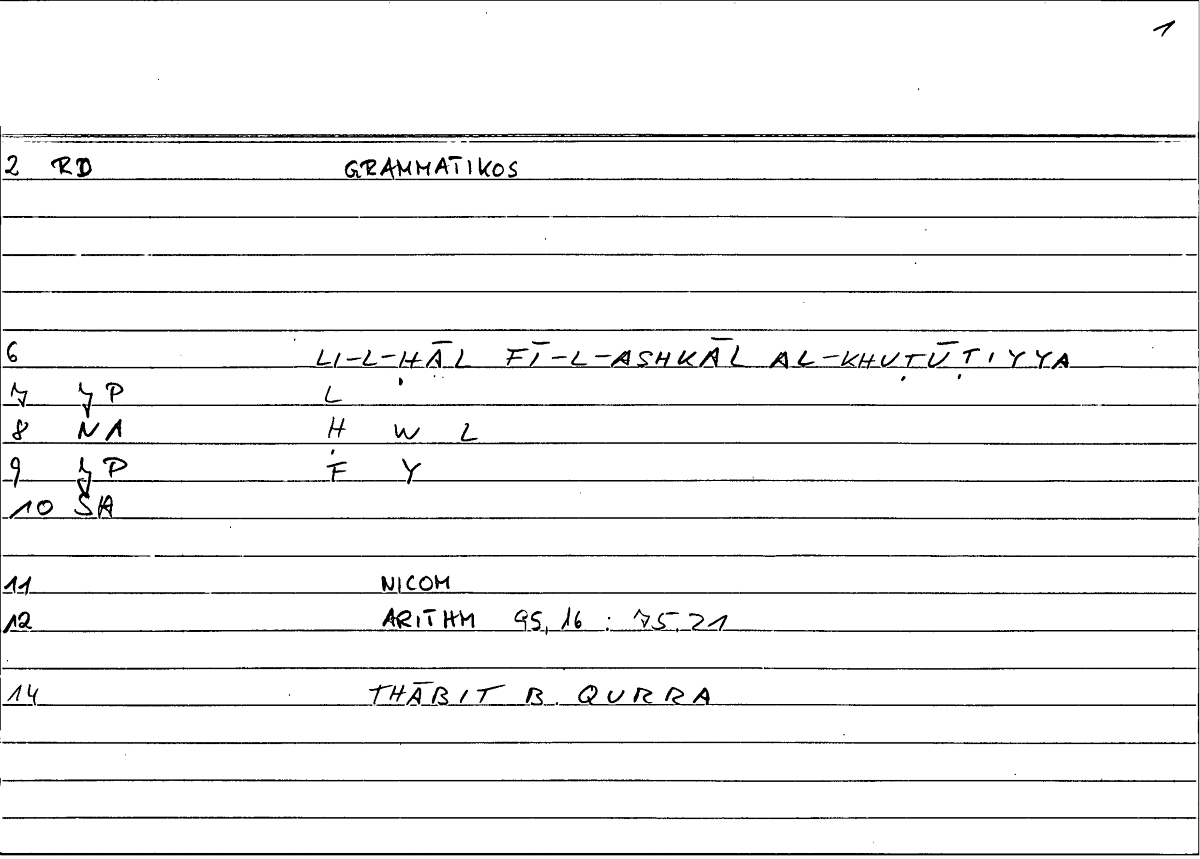 1
2 RD GRAMMATIKOS
6 LI-L-ḤĀL FĪ-L-ASHKĀL AL-KHUṬŪṬIYYA
7 YP L
8 NA Ḥ W L
9 YP F Y
10 ŠA
11 NICOM
12 ARITHM 95,16 : 75,21
14 THĀBIT B. QURRA